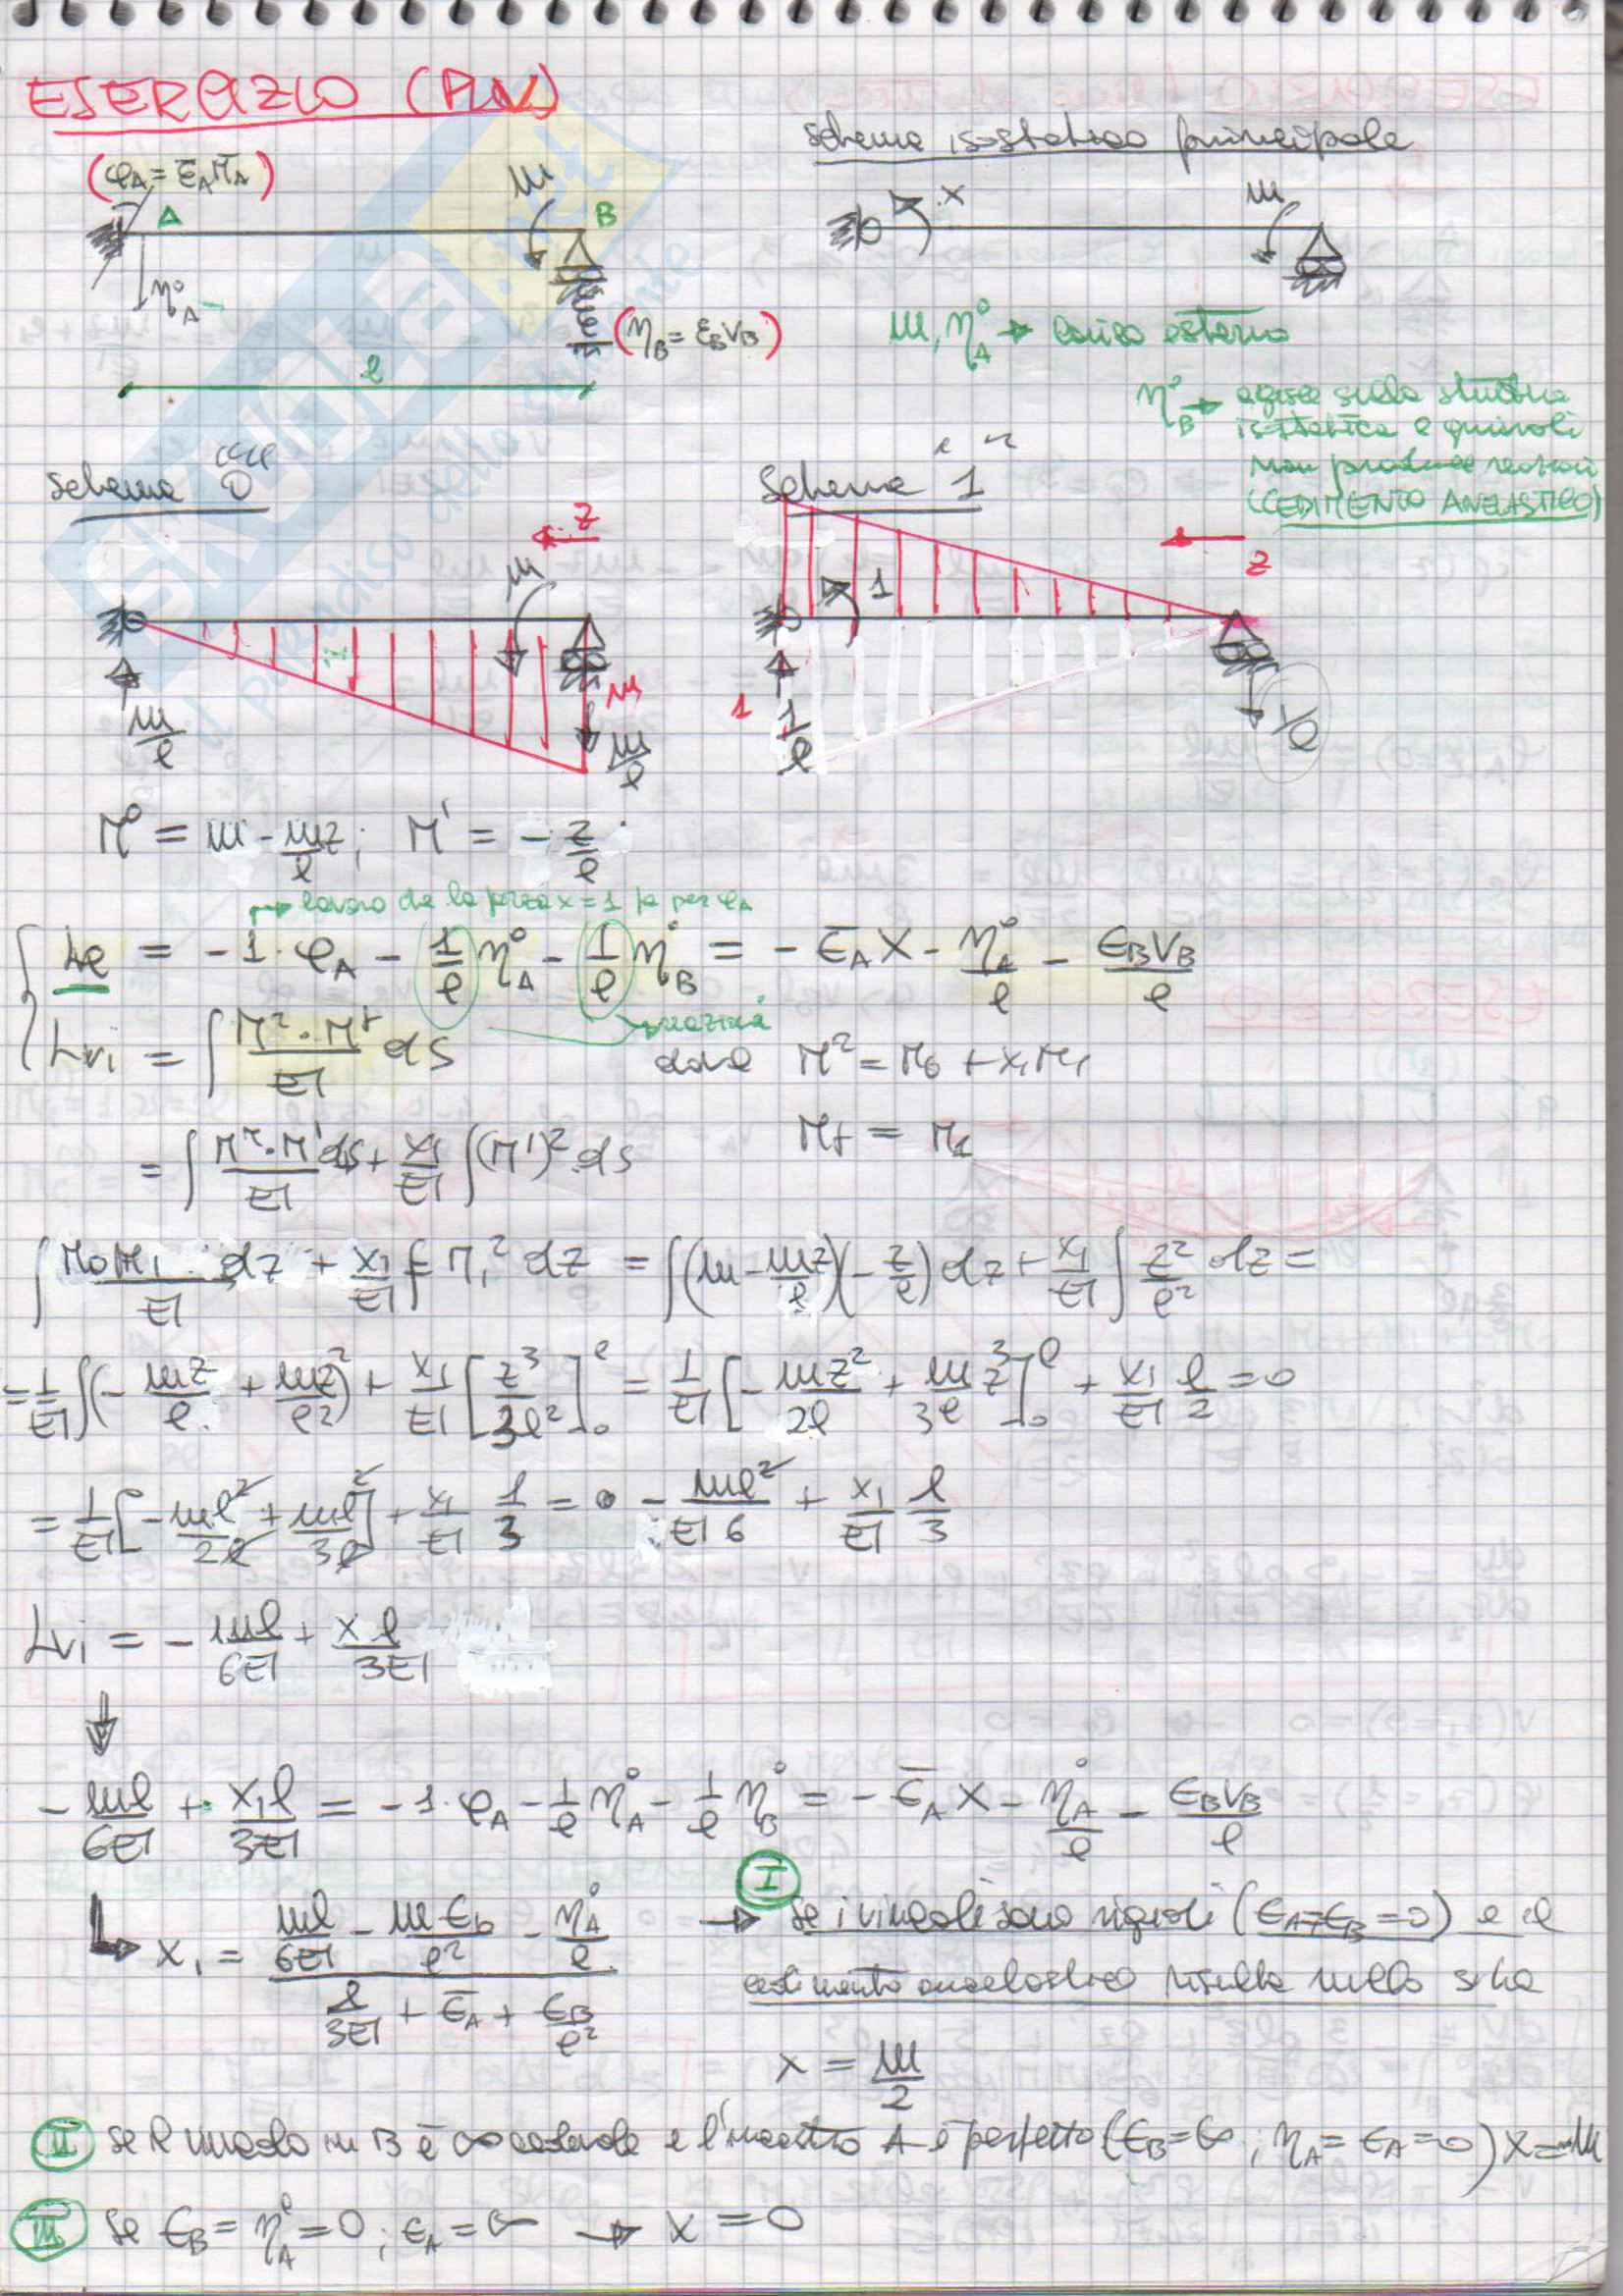 ESERCIZIO (PLV)
schema isostatico principale
(φA = ε̄A MA)
A
m
B
x
m
ηA°
(ηB = εB VB)
l
m, ηA° → causa esterna
ηB° → agisce sulla struttura
isostatica e quindi
non produce reazioni
(CEDIMENTO ANELASTICO)
schema "0"
schema "1"
z
m
1
z
m/l
m
m/l
1
1/l
1/l
M⁰ = m - mz/l ; M' = - z/l
→ lavoro che la forza x=1 fa per φA
Le = -1·φA - 1/l ηA° - 1/l ηB° = - ε̄A X - ηA°/l - εB VB/l
reazioni
Lvi = ∫ Mʳ·Mᶠ/EI ds dove Mʳ = M0 + x1 M1
Mf = M1
= ∫ Mʳ·M'/EI ds + x1/EI ∫(M')² ds
∫ M0 M1/EI dz + x1/EI ∫ M1² dz = ∫(m - mz/l)(- z/l) dz + x1/EI ∫ z²/l² dz =
= 1/EI ∫(- mz/l + mz²/l²) + x1/EI [z³/3l²]₀ˡ = 1/EI [- mz²/2l + m z³/3l]₀ˡ + x1/EI l/2 = 0
= 1/EI [- ml²/2l + ml²/3l] + x1/EI 1/3 = 0 - ml²/EI 6 + x1/EI l/3
Lvi = - ml/6EI + x l/3EI
⇓
- ml/6EI + x1 l/3EI = -1·φA - 1/l ηA° - 1/l ηB° = - ε̄A X - ηA°/l - εB VB/l
x1 = (ml/6EI - m εb/l² - ηA°/l) / (l/3EI + ε̄A + εB/l²)
I → se i vincoli sono rigidi (εA=εB=0) e il
cedimento anelastico risulta nullo si ha
x = m/2
II se il vincolo in B è ∞ cedevole e l'incastro A è perfetto (εB=∞ ; ηA = εA = 0) X = -m
III se εB = ηA° = 0 ; εA = ∞ → x = 0